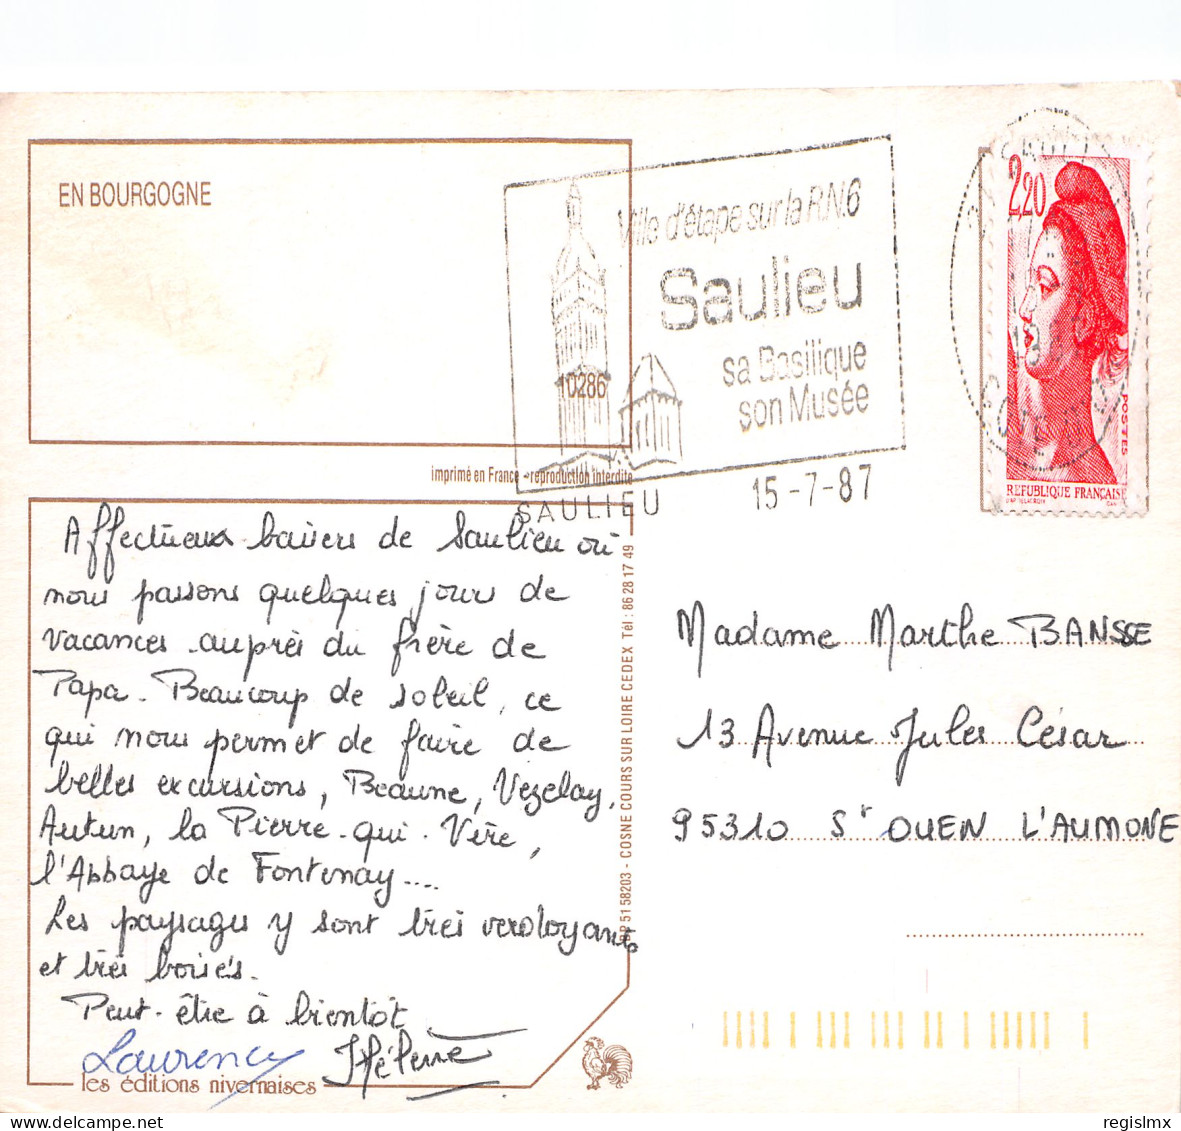 EN BOURGOGNE
10286
imprimé en France - reproduction interdite
Ville d'étape sur la R.N.6
Saulieu
sa Basilique
son Musée
SAULIEU
15-7-87
2,20
POSTES
REPUBLIQUE FRANÇAISE
Affectueux baisers de Saulieu où
nous passons quelques jours de
vacances auprès du frère de
Papa. Beaucoup de soleil, ce
qui nous permet de faire de
belles excursions, Beaune, Vezelay,
Autun, la Pierre-qui-Vire,
l'Abbaye de Fontenay....
Les paysages y sont très verdoyants
et très boisés.
Peut-être à bientôt
Laurence Hélène
les éditions nivernaises
BP 51 58203 - COSNE COURS SUR LOIRE CEDEX Tél : 86 28 17 49
Madame Marthe BANSSE
13 Avenue Jules César
95310 St OUEN L'AUMONE
regislmx